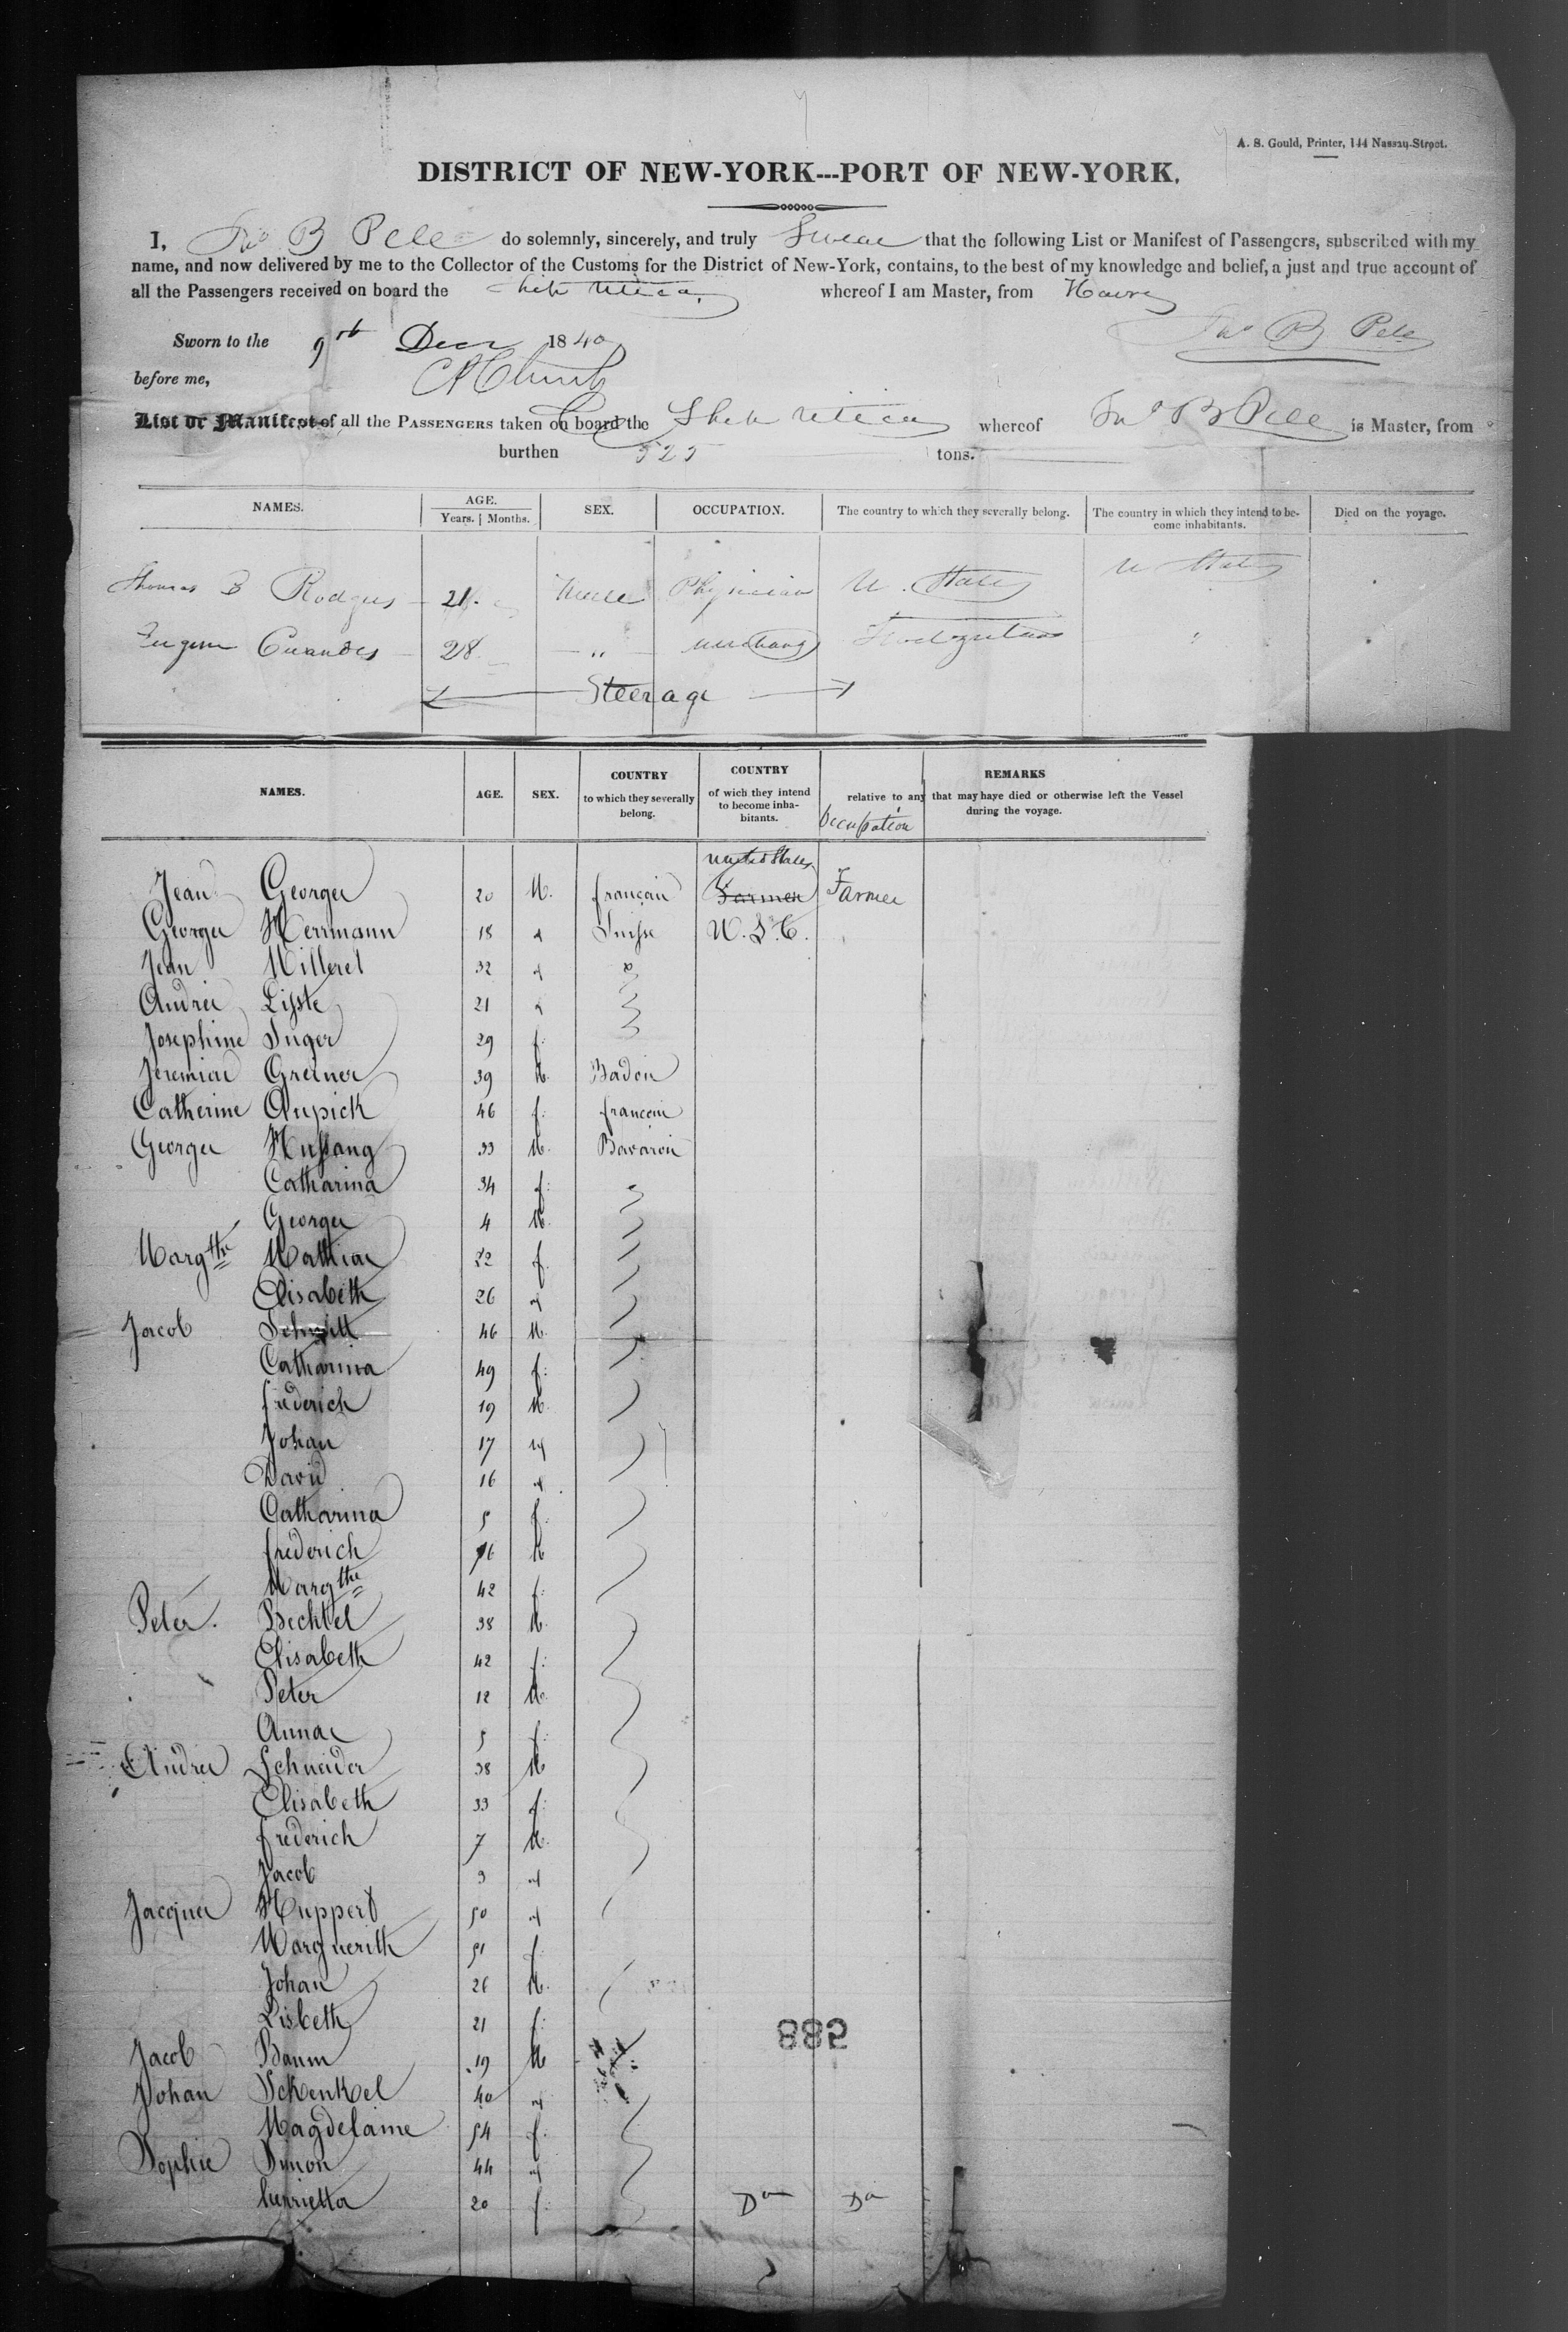 A. S. Gould, Printer, 144 Nassau-Street.
DISTRICT OF NEW-YORK---PORT OF NEW-YORK.
I, Jno B Pell do solemnly, sincerely, and truly Swear that the following List or Manifest of Passengers, subscribed with my
name, and now delivered by me to the Collector of the Customs for the District of New-York, contains, to the best of my knowledge and belief, a just and true account of
all the Passengers received on board the Ship Utica, whereof I am Master, from Havre
Jno B Pell
Sworn to the 9th Decr 1840
before me,
List or Manifest of all the PASSENGERS taken on board the Ship Utica whereof Jno B Pell is Master, from
burthen 525 tons.
NAMES. AGE. Years. Months. SEX. OCCUPATION. The country to which they severally belong. The country in which they intend to become inhabitants. Died on the voyage.
Thomas B Rodgers 21. Male Physician U. States U States
Eugene 28 " merchant
Steerage
NAMES. AGE. SEX. COUNTRY to which they severally belong. COUNTRY of wich they intend to become inhabitants. REMARKS relative to any that may have died or otherwise left the Vessel during the voyage.
Occupation
United States
Jean George 20 M. francais Farmer Farmer
George Herrmann 18 Suisse U. S.
Jean Milleret 32
Andre Lisste 21
Josephine 29 f.
Jeremias Greiner 39 M. Baden
Catherine Aupick 46 f. francais
George Hussong 33 M. Bavarois
Catharina 34 f.
George 4 M.
Margthe Mathias 22 f.
Elisabeth 26
Jacob Schmitt 46 M.
Catharina 49 f.
frederich 19 M.
Johan 17
David 16
Catharina 5 f.
frederich 16 M
Margthe 42 f.
Peter. Bechtel 38 M.
Elisabeth 42 f.
Peter 12 M.
Anna 5 f.
Andre Schneider 38 M
Elisabeth 33 f.
frederich 7 M.
Jacob 3
Jacques Huppert 50
Marguerith 51 f
Johan 26 M.
Lisbeth 21 f.
885
Jacob Baum 19 M
Johan Schenkel 40
Magdelaine 54 f.
Sophie Simon 44
henrietta 20 f. Do Do